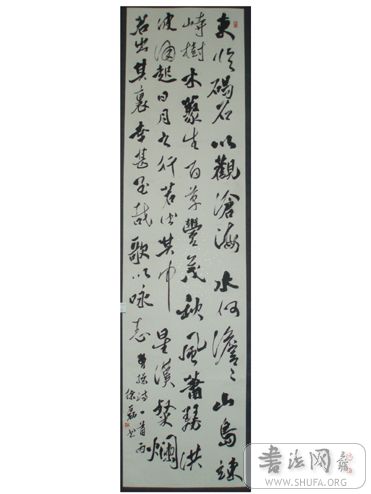 東临碣石以觀滄海水何澹〻山島竦
峙樹木叢生百草豐茂秋風蕭瑟洪
波涌起日月之行若出其中星漢燦爛
若出其裏幸甚至哉歌以咏志
曹操诗一首丙
徐书
書法网
WWW.SHUFA.ORG